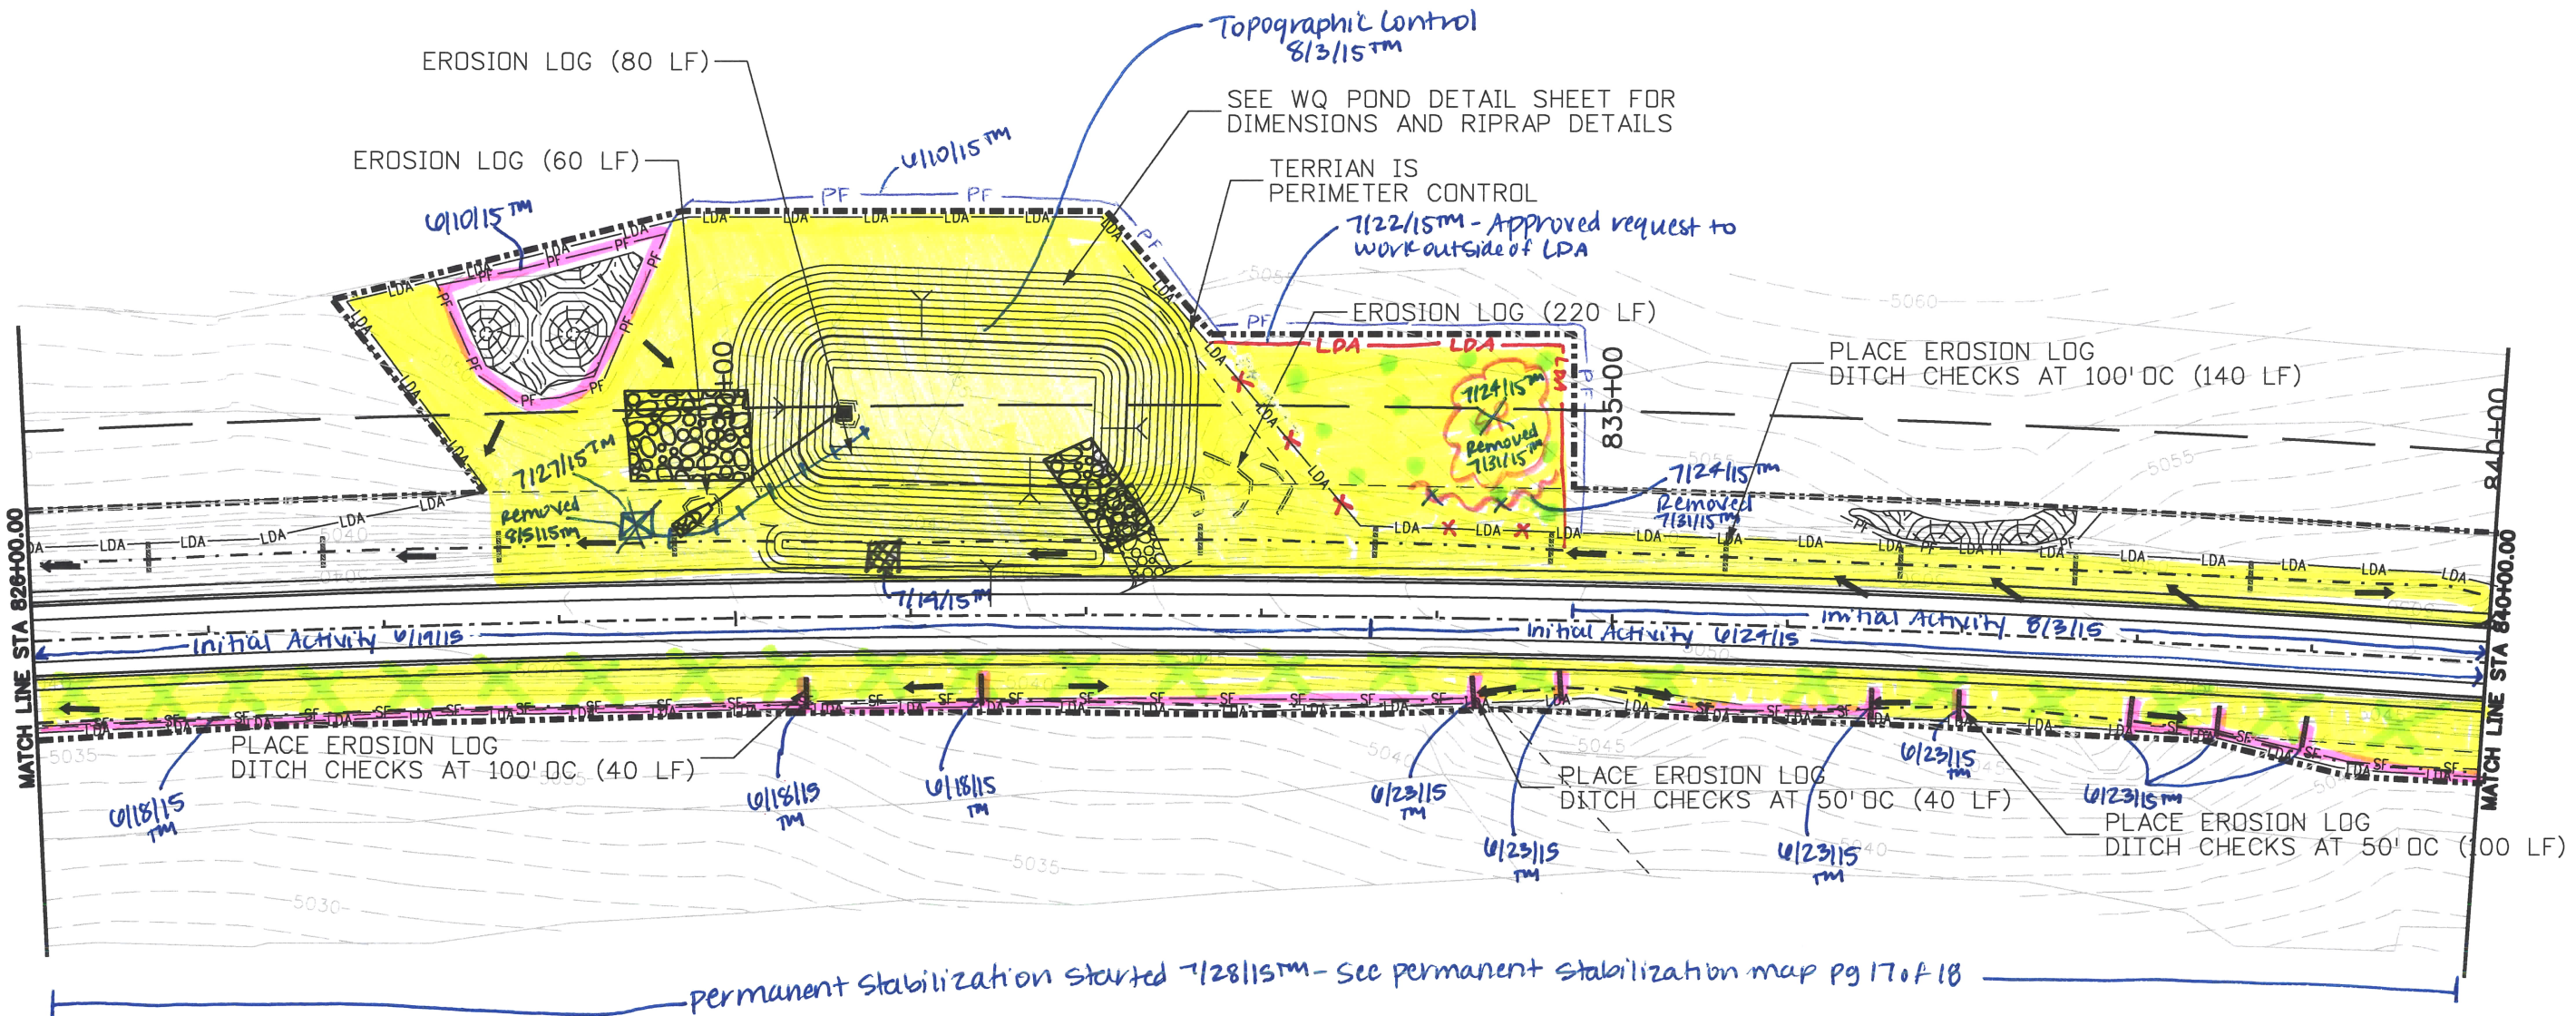 Topographic Control
8/3/15 TM
EROSION LOG (80 LF)
SEE WQ POND DETAIL SHEET FOR
DIMENSIONS AND RIPRAP DETAILS
EROSION LOG (60 LF)
6/10/15 TM
TERRIAN IS
PERIMETER CONTROL
6/10/15 TM
7/22/15 TM - Approved request to
work outside of LDA
EROSION LOG (220 LF)
PF
PF
PF
PF
PF
LDA
LDA
LDA
5060
PLACE EROSION LOG
DITCH CHECKS AT 100' OC (140 LF)
835+00
840+00
+00
7/24/15 TM
Removed
7/31/15 TM
7/27/15 TM
Removed
8/5/15 TM
7/24/15 TM
Removed
7/31/15 TM
5055
5055
5040
7/14/15 TM
MATCH LINE STA 826+00.00
MATCH LINE STA 840+00.00
Initial Activity 6/19/15
Initial Activity 6/24/15
Initial Activity 8/3/15
5050
5045
5040
LDA
SF
PLACE EROSION LOG
DITCH CHECKS AT 100' OC (40 LF)
6/18/15
TM
6/18/15
TM
6/18/15
TM
6/23/15
TM
6/23/15
TM
6/23/15
TM
6/23/15
TM
6/23/15 TM
PLACE EROSION LOG
DITCH CHECKS AT 50' OC (40 LF)
PLACE EROSION LOG
DITCH CHECKS AT 50' OC (100 LF)
5035
5035
5040
5045
5040
5035
5030
permanent Stabilization Started 7/28/15 TM - See permanent Stabilization map pg 17 of 18